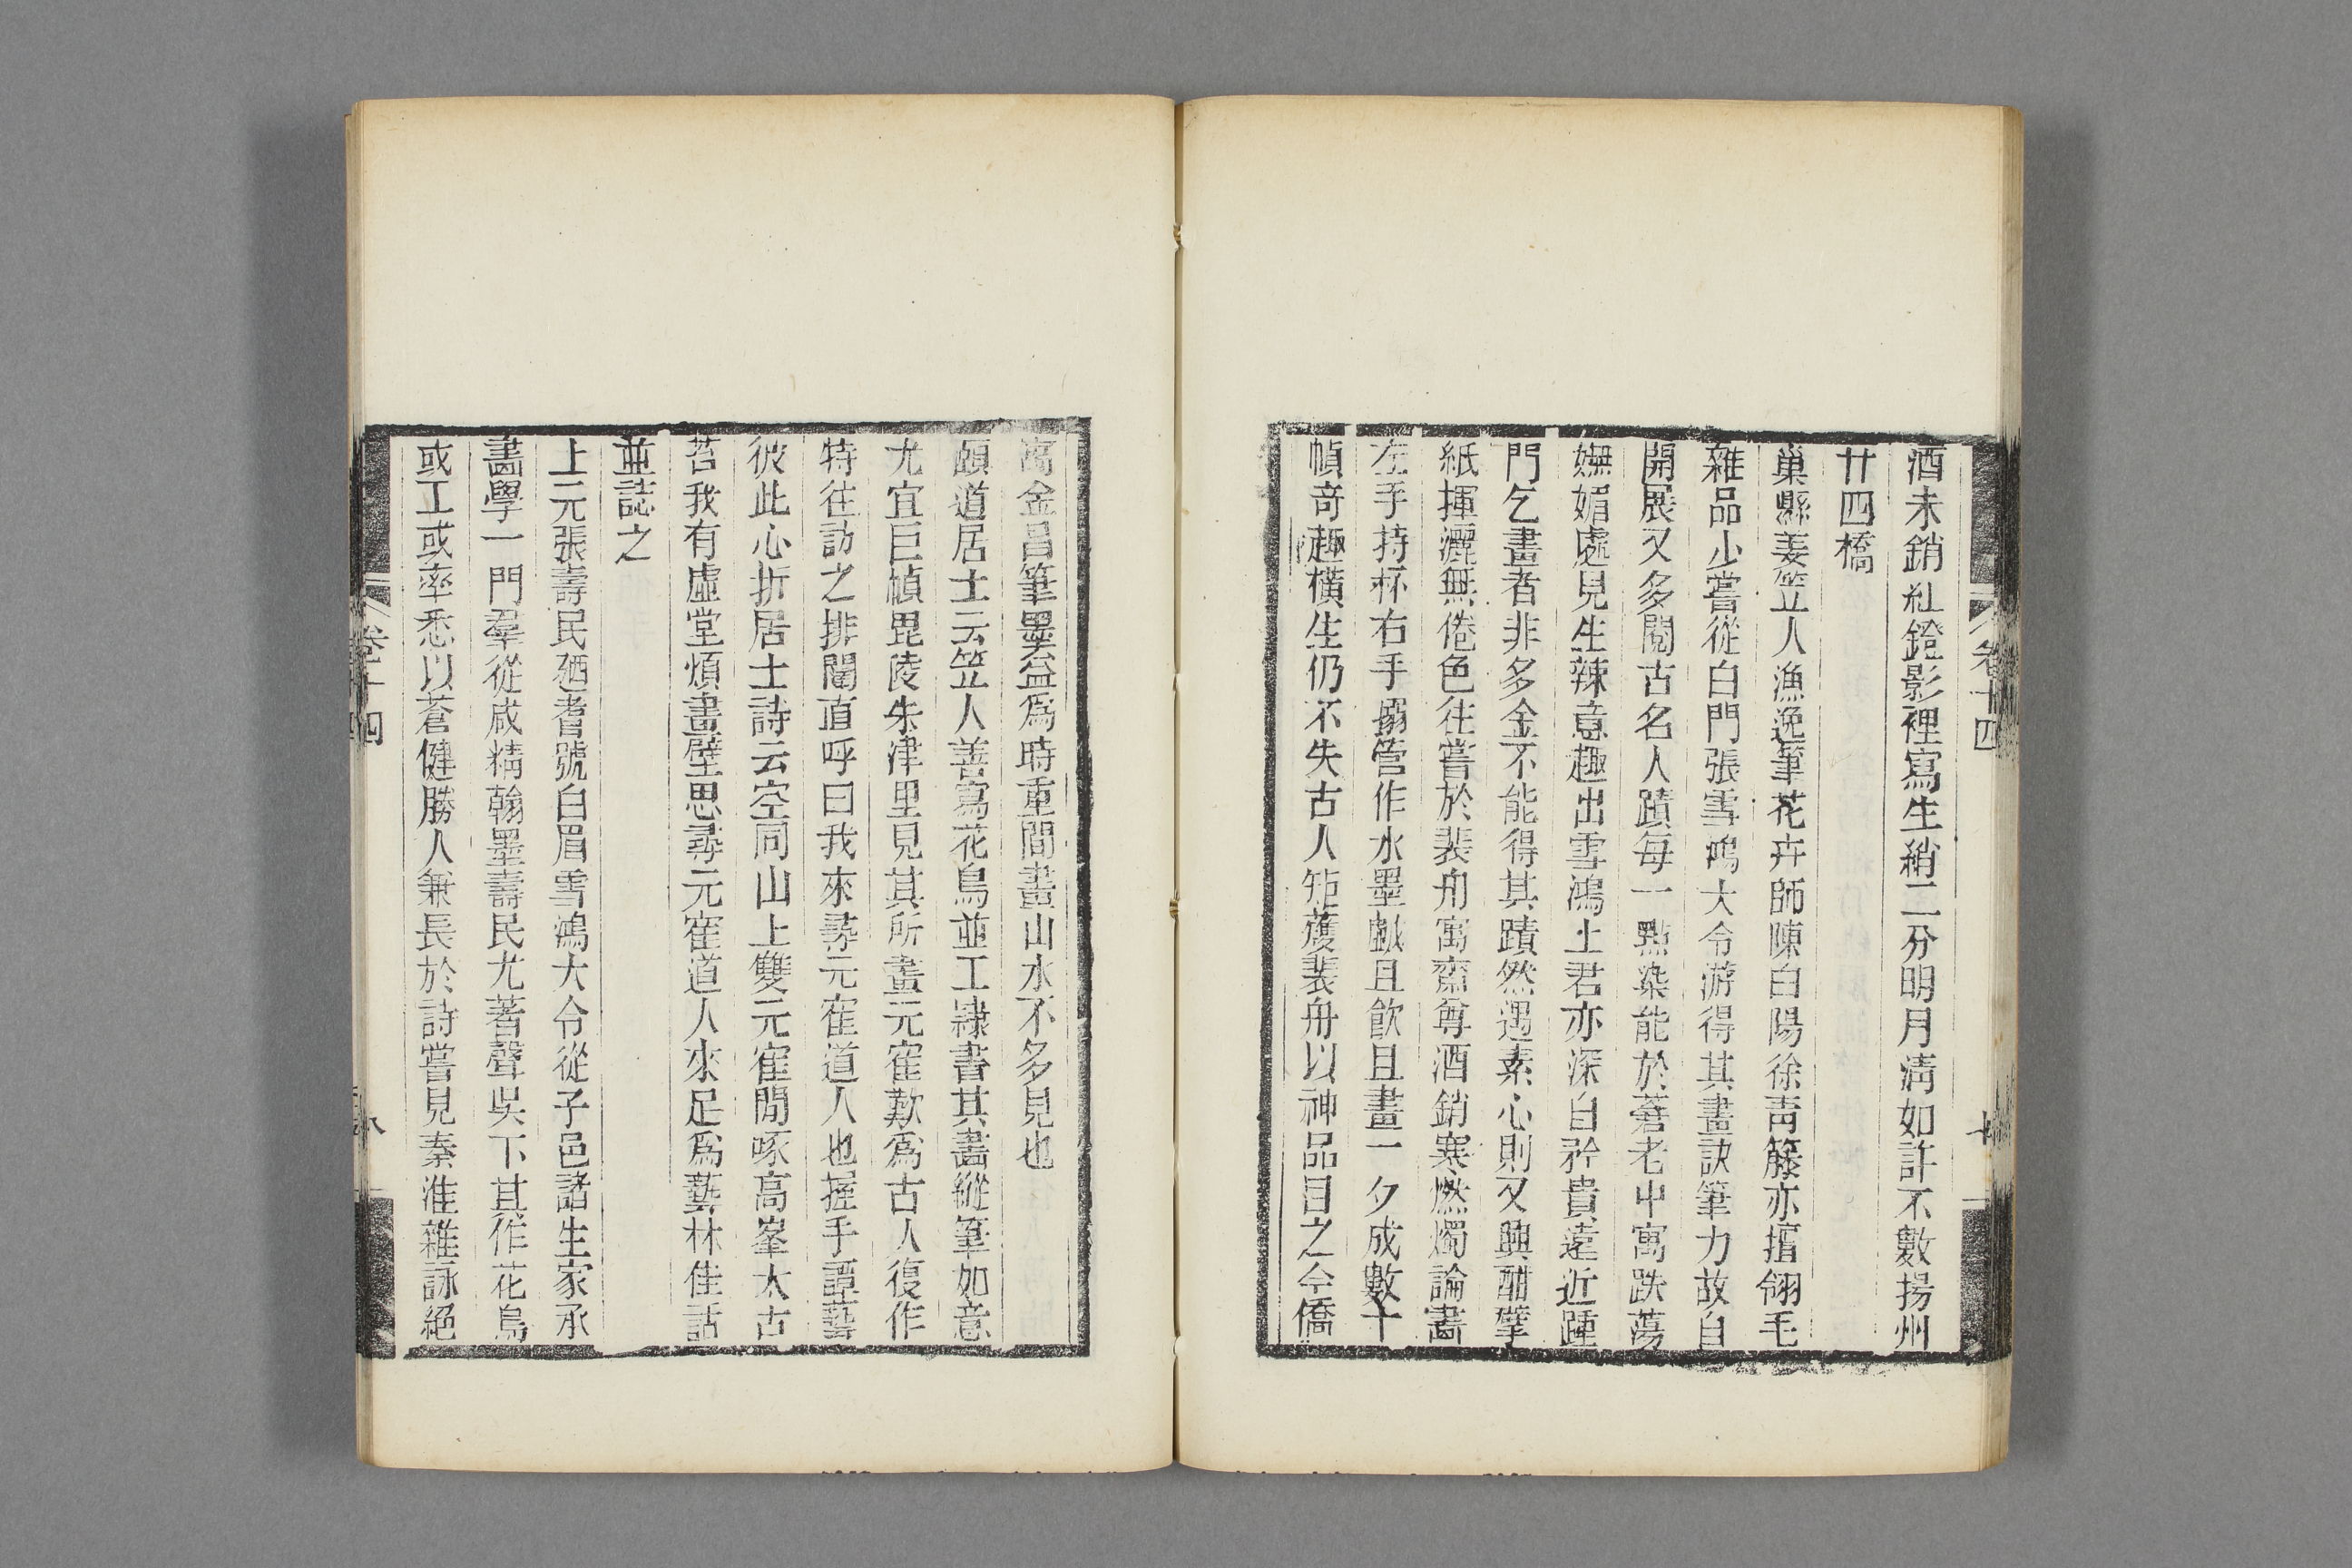 酒未銷紅鐙影裡寫生綃二分明月淸如許不數揚州
廿四橋
巢縣姜笠人漁逸筆花卉師陳白陽徐靑籐亦擅翎毛
雜品少嘗從白門張雪鴻大令游得其畫訣筆力故自
開展又多閱古名人蹟每一點染能於蒼老中寓跌蕩
嫵媚處見生辣意趣出雪鴻上君亦深自矜貴遠近踵
門乞畫者非多金不能得其蹟然遇素心則又興酣擘
紙揮灑無倦色往嘗於裴舟寓齋尊酒銷寒燃燭論畵
左手持杯右手搦管作水墨戲且飮且畫一夕成數十
幀奇趣橫生仍不失古人矩蒦裴舟以神品目之今僑
卷十四
寓金昌筆墨益爲時重間畫山水不多見也
頤道居士云笠人善寫花鳥並工隷書其畵縱筆如意
尤宜巨幀毘陵朱津里見其所畫元寉歎爲古人復作
特往訪之排闥直呼曰我來尋元寉道人也握手譚藝
彼此心折居士詩云空同山上雙元寉閒啄高峯太古
苔我有虛堂煩畫壁思尋元寉道人來足爲藝林佳話
並誌之
上元張壽民廼耆號白眉雪鴻大令從子邑諸生家承
畵學一門羣從咸精翰墨壽民尤著聲吳下其作花鳥
或工或率悉以蒼健勝人兼長於詩嘗見秦淮雜詠絕
卷十四